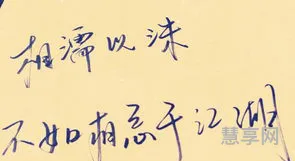 相濡以沫
不如相忘于江湖
慧享网